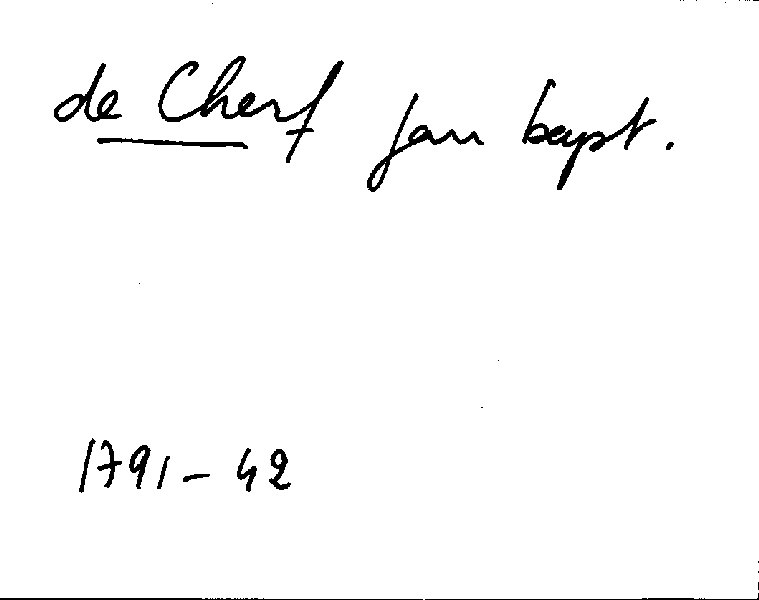 de Cherf Jan bapt.
1791-42